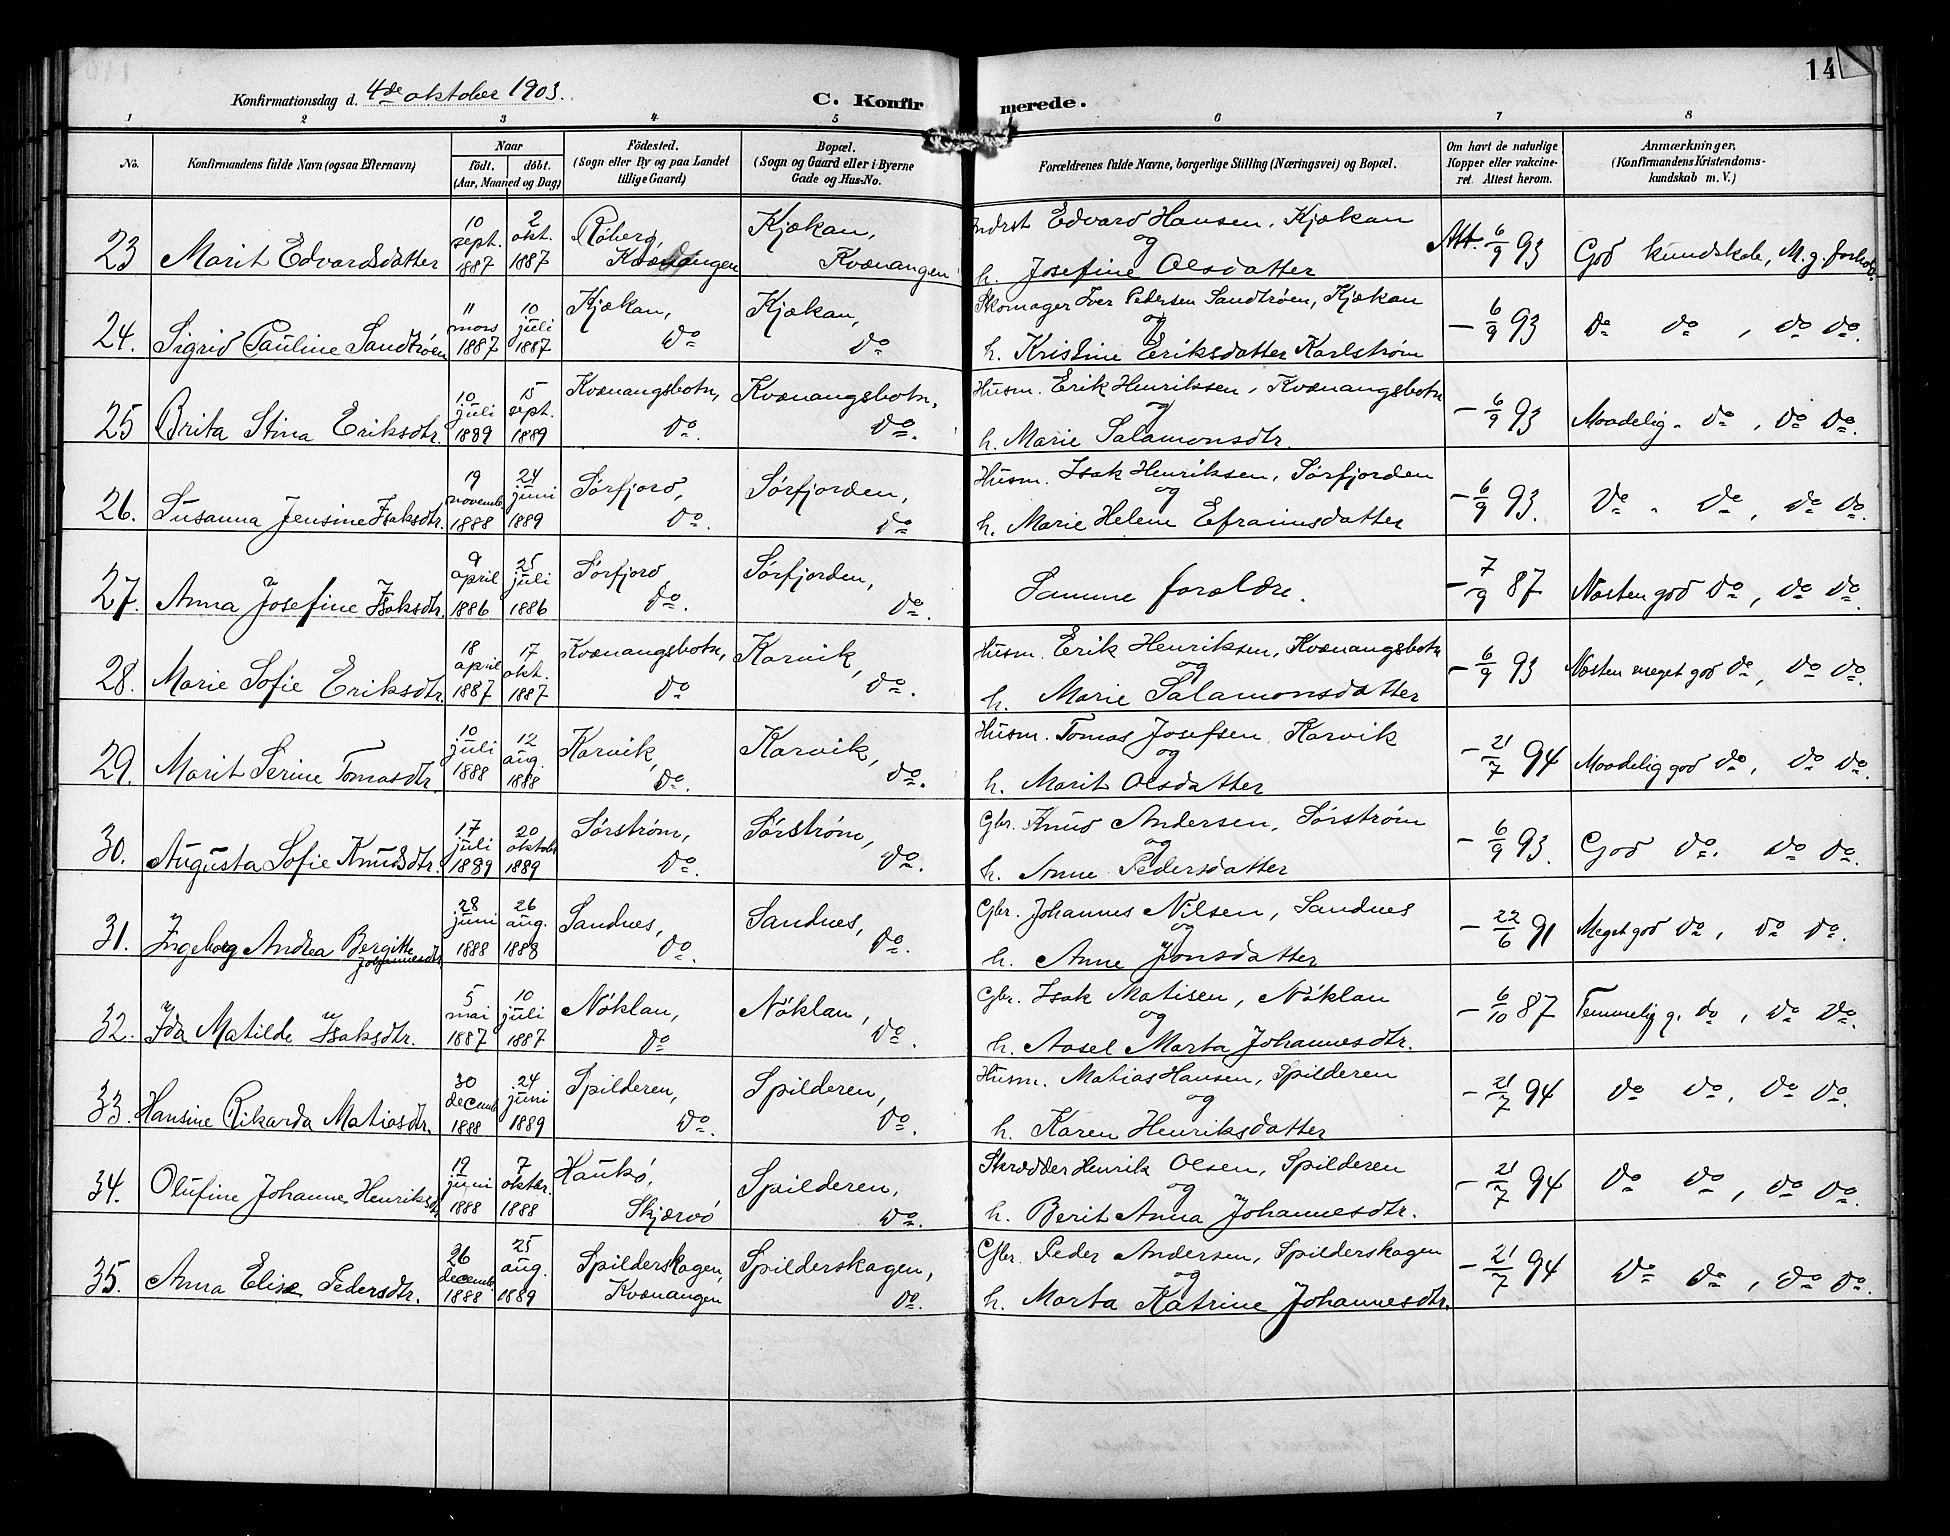 14
Konfirmationsdag d. 4de oktober 1903.
C. Konfirmerede.
1 2 3 4 5 6 7 8
No.
Konfirmandens fulde Navn (ogsaa Efternavn)
Naar
født. døbt.
(Aar, Maaned og Dag)
Fødested.
(Sogn eller By og paa Landet
tillige Gaard)
Bopæl.
(Sogn og Gaard eller i Byerne
Gade og Hus-No.
Forældrenes fulde Navne, borgerlige Stilling (Næringsvei) og Bopæl.
Om havt de naturlige
Kopper eller vakcine-
ret. Attest herom.
Anmærkninger,
(Konfirmandens Kristendoms-
kundskab m. V.)
23 Marit Edvardsdatter
10 sept. 1887
2 okt. 1887
Røberg, Kvænangen
Kjækan, Kvænangen
Indrst Edvard Hansen, Kjækan
og
h. Josefine Olsdatter
Att. 6/9 93
God kundskab, M. g. forhold
24. Sigrid Pauline Sandtrøen
11 mars 1887
10 juli 1887
Kjækan, do
Kjækan, do
Skomager Iver Pedersen Sandtrøen, Kjækan
og
h. Kristine Eriksdatter Karlstrøm
- 6/9 93
do do, do do.
25 Brita Stina Eriksdtr.
10 juli 1889
15 sept. 1889
Kvænangsbotn, do.
Kvænangsbotn, do.
Husm. Erik Henriksen, Kvænangsbotn
og
h. Marie Salamonsdtr.
- 6/9 93
Maadelig. do, do do.
26. Susanna Jensine Isaksdtr.
19 novemb 1888
24 juni 1889
Sørfjord, do.
Sørfjorden, do
Husm. Isak Henriksen, Sørfjorden
og
h. Marie Helene Efraimsdatter
- 6/9 93.
do. do, do do.
27. Anna Josefine Isaksdtr.
9 april 1886
25 juli 1886
Sørfjord, do.
Sørfjorden, do.
Samme forældre.
- 7/9 87
Næsten god do, do do.
28. Marie Sofie Eriksdtr.
18 april 1887
17 okt. 1887
Kvænangsbotn, do
Karvik, do.
Husm. Erik Henriksen, Kvænangsbotn
og
h. Marie Salamonsdatter
- 6/9 93
Næsten meget god do, do do.
29. Marit Serine Tomasdtr.
10 juli 1888
12 aug. 1888
Karvik, do.
Karvik, do.
Husm. Tomas Josefsen, Karvik
og
h. Marit Olsdatter
- 21/7 94
Maadelig god do, do do.
30. Augusta Sofie Knudsdtr.
17 juli 1889
20 oktobr 1889
Sørstrøm, do.
Sørstrøm, do.
Gbr. Knud Andersen, Sørstrøm
og
h. Anne Pedersdatter
- 6/9 93.
God do. do do.
31. Ingeborg Andrea Bergitte
Johannesdtr.
28 juni 1888
26 aug. 1888
Sandnes, do.
Sandnes, do.
Gbr. Johannes Nilsen, Sandnes
og
h. Anne Jonsdatter
- 22/6 91
Meget god do, do do.
32. Ida Matilde Isaksdtr.
5 mai 1887
10 juli 1887
Nøklan, do
Nøklan, do.
Gbr. Isak Matisen, Nøklan
og
h. Aasel Marta Johannesdtr.
- 6/10 87
Temmelig g. do, do do.
33. Hansine Rikarda Matiasdtr.
30 decemb 1888
24 juni 1889
Spilderen, do.
Spilderen, do.
Husm. Matias Hansen, Spilderen
og
h. Karen Henriksdatter
- 21/7 94
do do, do do.
34. Olufine Johanne Henriksdtr
19 juni 1888
7 oktbr. 1888
Haukø, Skjærvø
Spilderen, do.
Skrædder Henrik Olsen, Spilderen
og
h. Berit Anna Johannesdtr.
- 21/7 94
do do, do do.
35. Anna Elise Pedersdtr.
26 decemb. 1888
25 aug. 1889
Spilderskagen, Kvænangen
Spilderskagen, do.
Gbr. Peder Andersen, Spilderskagen
og
h. Marta Katrine Johannesdtr.
- 21/7 94
do do, do do.